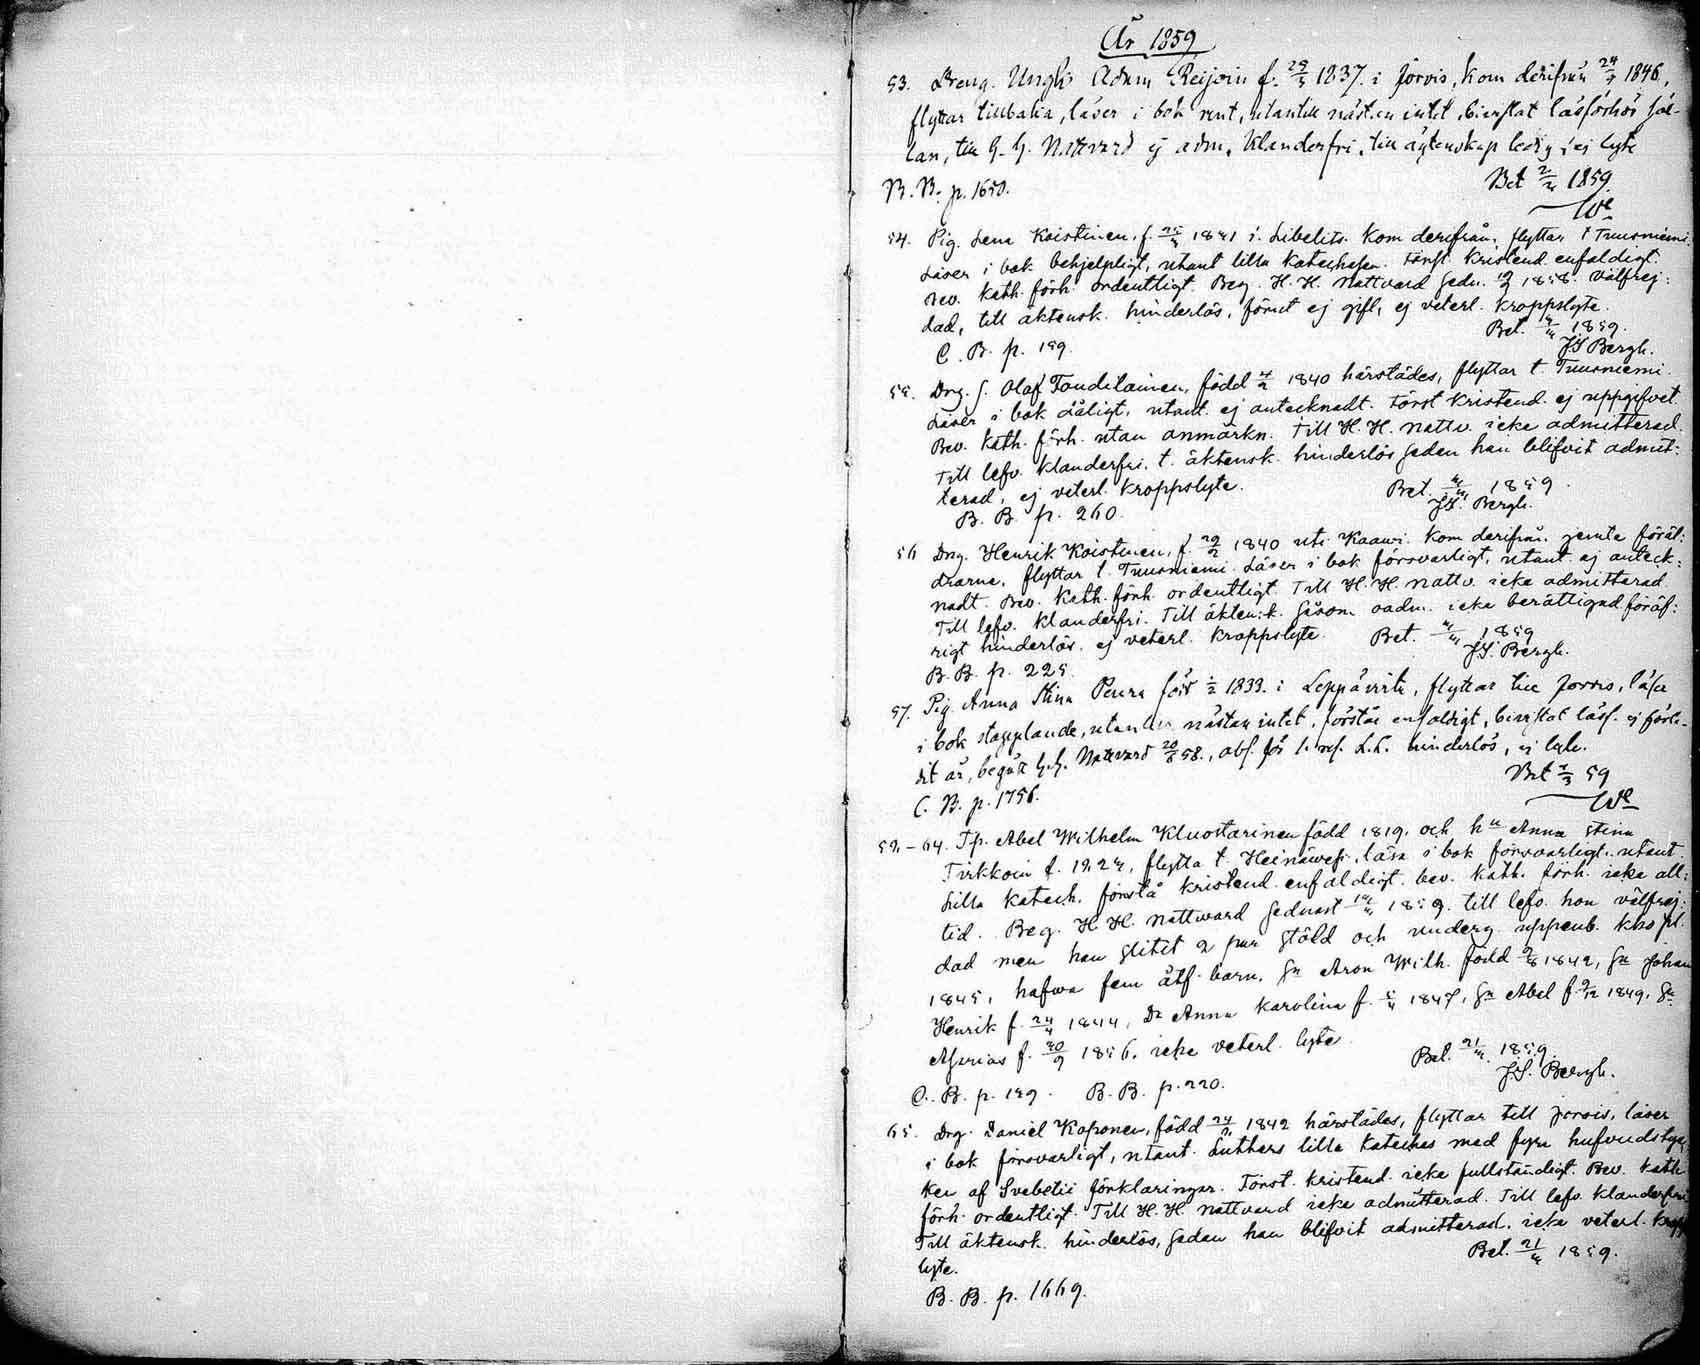 År 1859
53. Dreng. Ungk. Adam Reijoin f. 29/3 1837. i Jorois, kom derifrån 24/7 1846,
flyttar tillbaka, läser i bok rent, utantill nästan intet, bevistat läsförhör säl-
lan, till H. H. Nattvard ej adm. Klanderfri, till äktenskap ledig, ej lyte
B. B. p. 1650. Bet 2/3 1859
We
54. Pig. Lena Koistinen, f. 1841 i Libelits. Kom derifrån, flyttar t Tuusniemi.
Läser i bok behjelpligt, utant lilla Katechesen. Förs:t Kristend. enfaldigt.
Bev. Kath. förh. ordentligt. Beg. H. H. Nattvard sedn. 1858. välfrej:
dad, till äktensk. hinderlös, förut ej gift, ej veterl. Kroppslyte.
C. B. p. 199. Bet. 1859.
JS Bergh.
55. Drg. S. Olof Tonditainen, född 1840 härstädes, flyttar t Tuusniemi.
Läser i bok dåligt, utant. ej antecknadt. Först Kristend. ej uppgifvet.
Bev. Kath. förh. utan anmärkn. Till H. H. Nattv. icke admitterad.
Till lefv. klanderfri, t. äktensk. hinderlös sedan han blifvit admit:
terad, ej veterl. Kroppslyte. Bet. 1859.
B. B. p. 260. JS. Bergh.
56 Drg. Henrik Koistinen, f. 29/2 1840 uti Kaawi. Kom derifrån jemte föräl:
drarne, flyttar t. Tuusniemi. Läser i bok försvarligt, utant. ej anteck:
nadt. Bev. Kath. förh. ordentligt. Till H. H. Nattv. icke admitterad.
Till lefv. klanderfri. Till äktensk. såsom oadm. icke berättigad, föröf:
rigt hinderlös, ej veterl. Kroppslyte. Bet. 1859
B. B. p. 225. JS. Bergh.
57. Pig. Anna Stina Peura född 1/2 1833. i Leppävirta, flyttar till Jorois, läser
i bok stapplande, utantill nästan intet, förstår enfaldigt, bevistat läsf. ej förle-
det år, begått H. H. Nattvard 20/6 58., abs. för 1. res. L. L. hinderlös, ej lyte.
C. B. p. 1756. Bet 7/3 59
We
58–64. Tp. Abel Wilhelm Kluostarinen född 1819. och hu Anna Stina
Tirkkoin f. 1824, flytta t. Heinäwesi, läsa i bok försvarligt, utant.
Lilla Katech. förstå Kristend. enfaldigt. bev. Kath. förh. icke all:
tid. Beg. H H. Nattvard sednast 1859. till lefv. hon välfrej:
dad men han slitit 2 par stöld och underg. uppenb. kkopl.
1845, hafwa fem åtf. barn, Sn Aron Wilh. född 9/8 1842, Sn Johan
Henrik f. 24/4 1844, Dr Anna Karolina f. 5/4 1847, Sn Abel f 9/12 1849, Sn
Asarias f. 30/9 1856. icke veterl. lyte. Bet. 21/3 1859.
C. B. p. 199. B. B. p. 220. J.S. Bergh.
65. Drg. Daniel Koponen, född 24/2 1842 härstädes, flyttar till Jorois, läser
i bok försvarligt, utant. Luthers lilla Kateches med fyra hufvudstyc
ken af Svebelii förklaringar. Först. kristend. icke fullständigt. Bev. Kath.
förh. ordentligt. Till H. H. Nattvard icke admitterad. Till lefv. klanderfri
Till äktensk. hinderlös, sedan han blifvit admitterad. icke veterl. Kropp
lyte. Bet. 21/3 1859.
B. B. p. 1669.